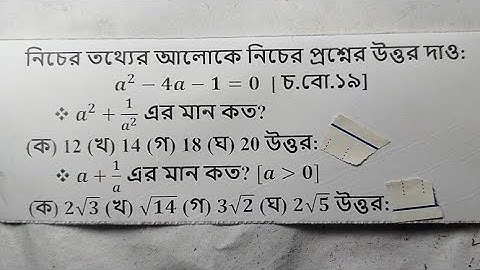 নিচের তথ্যের আলোকে নিচের প্রশ্নের উত্তর দাও:
a² − 4a − 1 = 0 [ চ.বো.১৯]
❖ a² + 1/a² এর মান কত?
(ক) 12 (খ) 14 (গ) 18 (ঘ) 20 উত্তর:
❖ a + 1/a এর মান কত? [a > 0]
(ক) 2√3 (খ) √14 (গ) 3√2 (ঘ) 2√5 উত্তর: